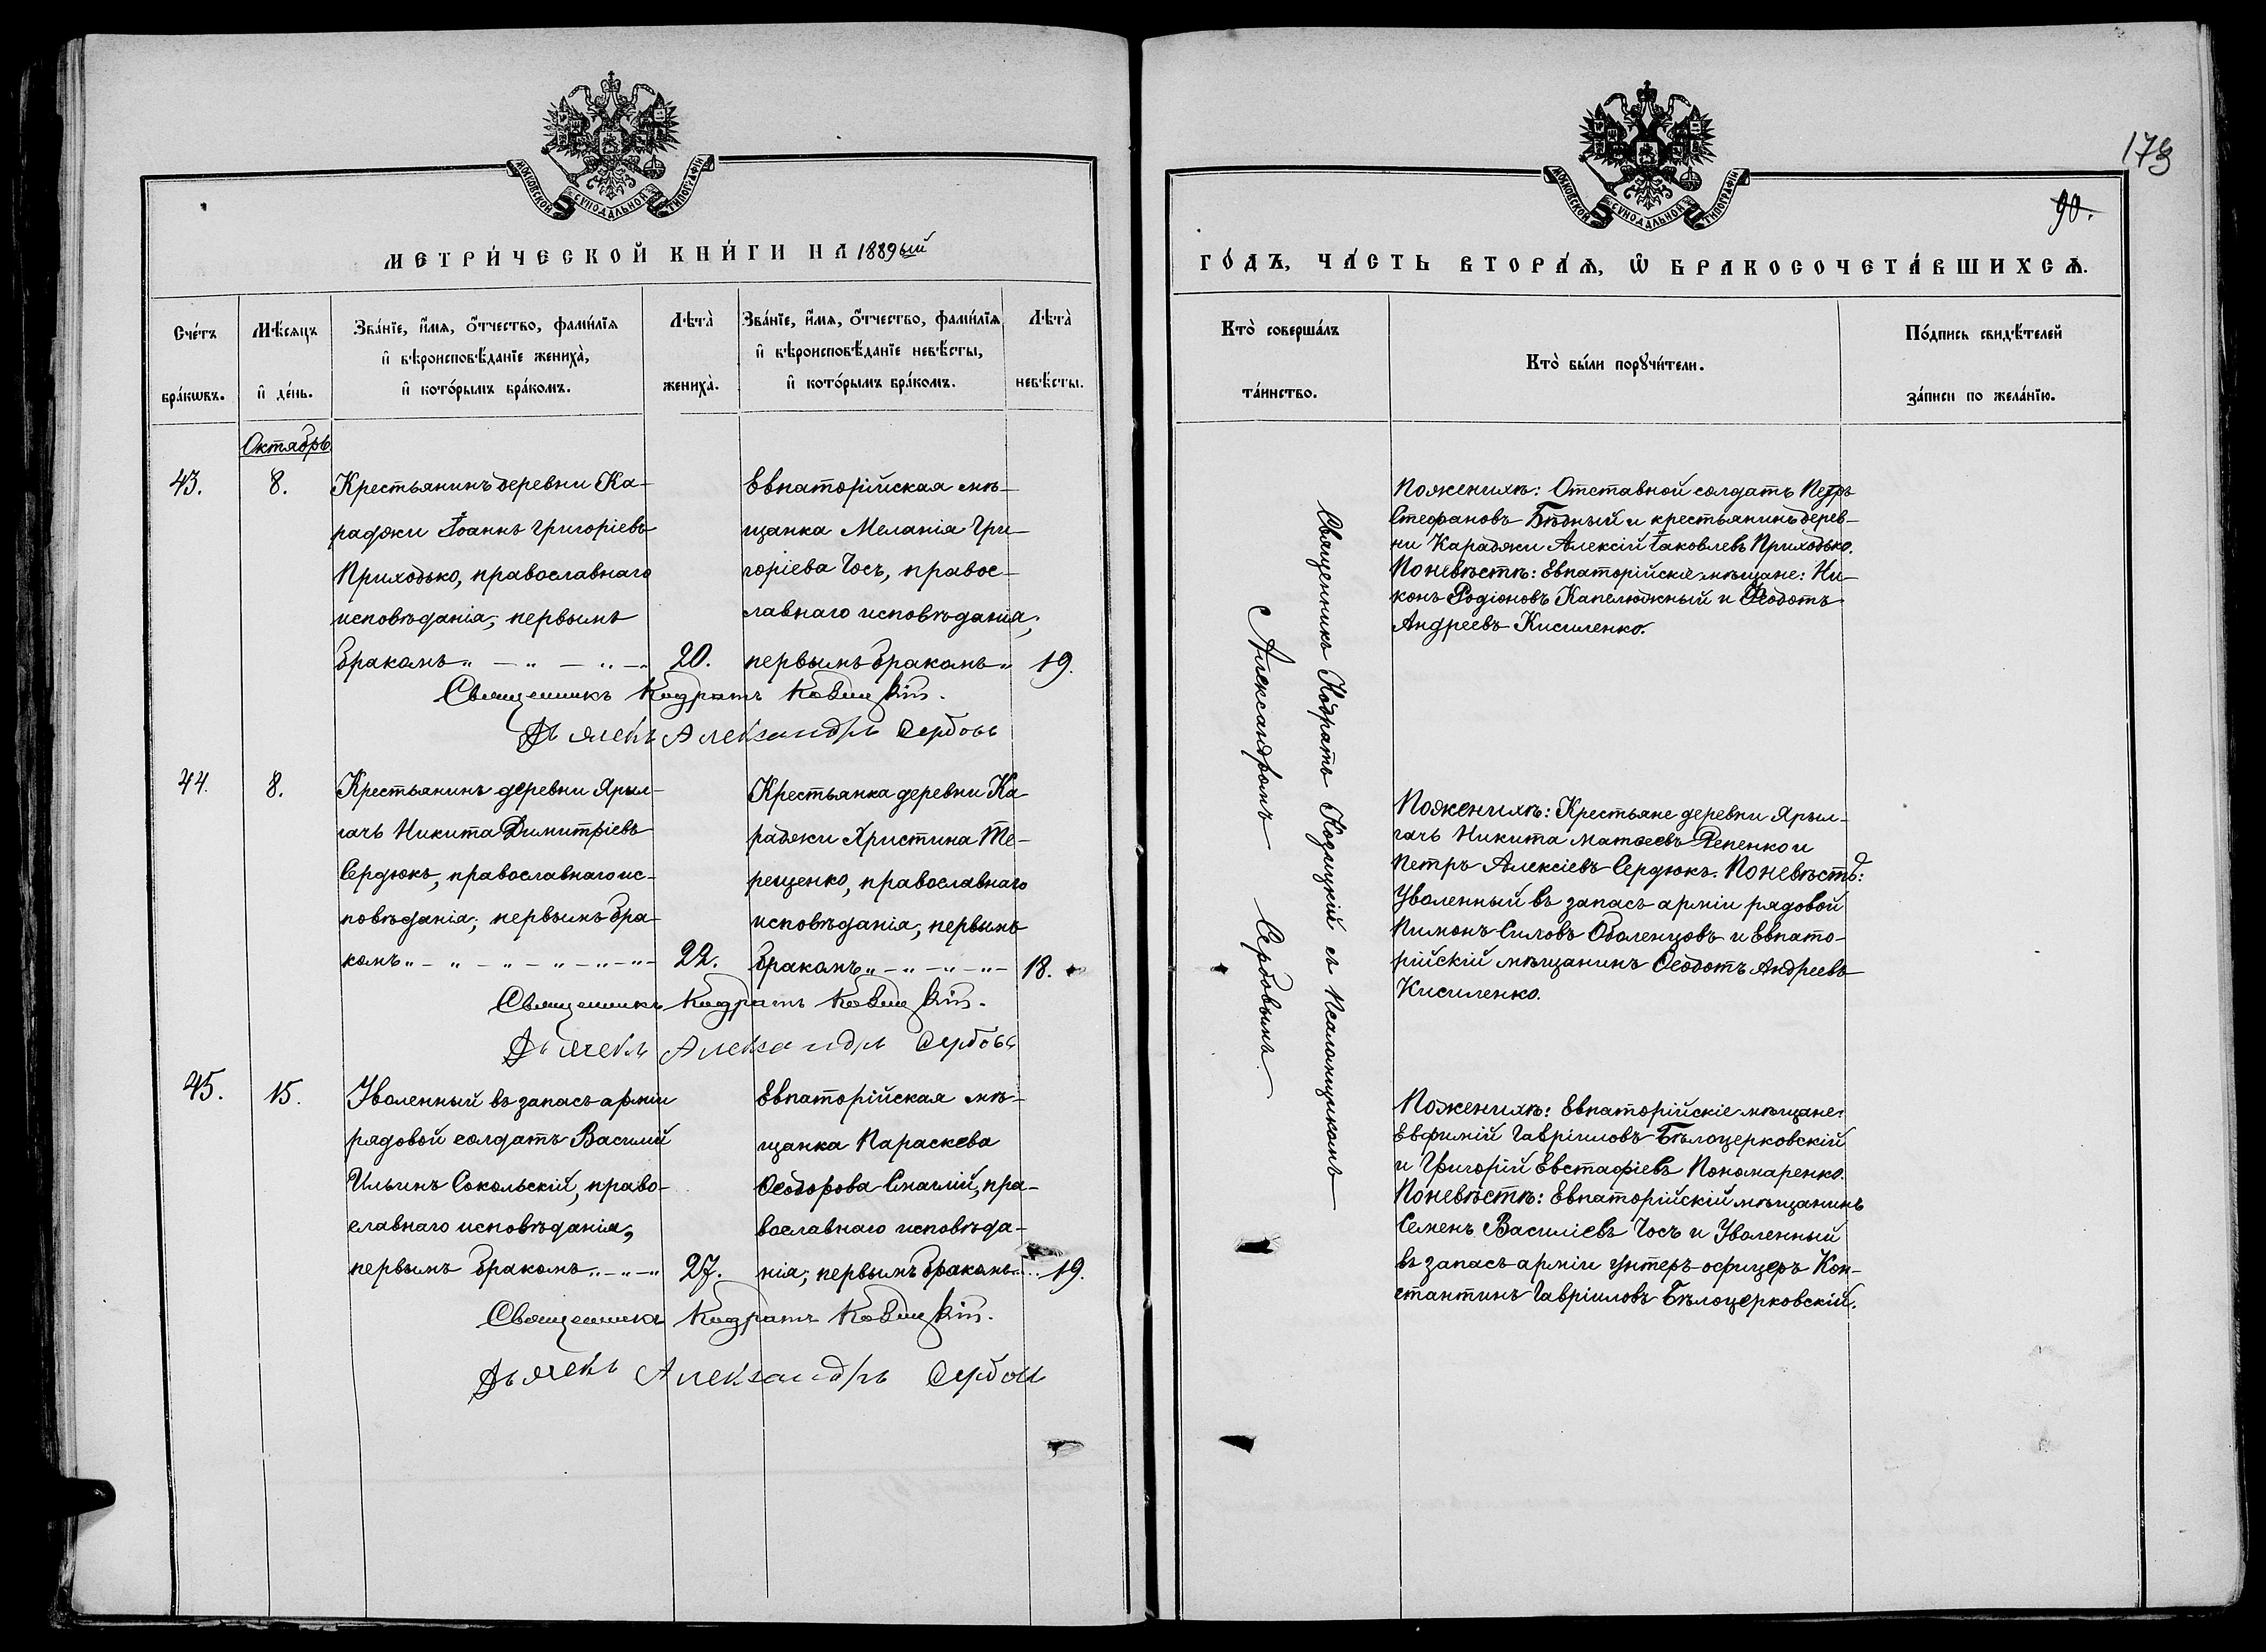 МОСКОВСКОЙ СѴНОДАЛЬНОЙ ТИПОГРАФІИ
МЕТРИ́ЧЕСКОЙ КНИ́ГИ НА 1889ый
Сче́тъ бра́кωвъ.
Мѣ́сяцъ и҆ де́нь.
Зва́нїе, и҆́мя, о҆́тчество, фами́лїя
и҆ вѣроисповѣ́данїе жениха̀,
и҆ кото́рымъ бра́комъ.
Лѣта̀ жениха̀.
Зва́нїе, и҆́мя, о҆́тчество, фами́лїя
и҆ вѣроисповѣ́данїе невѣ́сты,
и҆ кото́рымъ бра́комъ.
Лѣта̀ невѣ́сты.
Октябрь
43.
8.
Крестьянинъ деревни Ка-
раджи Іоаннъ Григоріевъ
Приходько, православнаго
исповѣданія, первымъ
бракомъ „ — „ — „ — „
20.
Евпаторійская мѣ-
щанка Меланія Гри-
горіева Чосъ, правос-
лавнаго исповѣданія,
первымъ бракомъ „
19.
Священникъ Кодратъ
Дьячекъ Александръ Сербовъ
44.
8.
Крестьянинъ деревни Ярыл-
гачъ Никита Димитріевъ
Сердюкъ, православнаго ис-
повѣданія, первымъ бра-
комъ „ — „ — „ — „ — „ — „ —
22.
Крестьянка деревни Ка
раджи Христина Те-
рещенко, православнаго
исповѣданія, первымъ
бракомъ „ — „ — „ — „ —
18.
Священникъ Кодратъ
Дьячекъ Александръ Сербовъ
45.
15.
Уволенный въ запасъ арміи
рядовой солдатъ Василій
Ильинъ Сокольскій, право-
славнаго исповѣданія,
первымъ бракомъ „ — „ — „
27.
Евпаторійская мѣ-
щанка Параскева
Ѳеодорова Снаглій, пра-
вославнаго исповѣда-
нія, первымъ бракомъ
19.
Священникъ Кодратъ
Дьячекъ Александръ Сербовъ
173
90.
МОСКОВСКОЙ СѴНОДАЛЬНОЙ ТИПОГРАФІИ
ГО́ДЪ, ЧА́СТЬ ВТОРА́Я, Ѡ҆ БРАКОСОЧЕТА́ВШИХСЯ.
Кто̀ соверша́лъ
та́инство.
Кто̀ бы́ли порꙋчи́тели.
По́дпись свидѣ́телей
за́писи по жела́нїю.
Священникъ Кодратъ съ Псаломщикомъ
Александромъ Сербовымъ.
По женихѣ: Отставной солдатъ Петръ
Стефановъ Бѣдный и крестьянинъ дерев-
ни Караджи Алексій Іаковлевъ Приходько.
По невѣстѣ: Евпаторійскіе мѣщане: Ни-
конъ Родіоновъ Капелюжный и Ѳеодотъ
Андреевъ Кисиленко.
По женихѣ: Крестьяне деревни Ярыл-
гачъ Никита Матѳеевъ Репенко и
Петръ Алексіевъ Сердюкъ. По невѣстѣ:
Уволенный въ запасъ арміи рядовой
Пимонъ Силовъ Оболенцовъ и Евпато-
рійскій мѣщанинъ Ѳеодотъ Андреевъ
Кисиленко.
По женихѣ: Евпаторійскіе мѣщане:
Евфимій Гавріиловъ Бѣлоцерковскій
и Григорій Евстафіевъ Пономаренко.
По невѣстѣ: Евпаторійскій мѣщанинъ
Семенъ Василіевъ Чосъ и Уволенный
въ запасъ арміи унтеръ-офицеръ Кон-
стантинъ Гавріиловъ Бѣлоцерковскій.